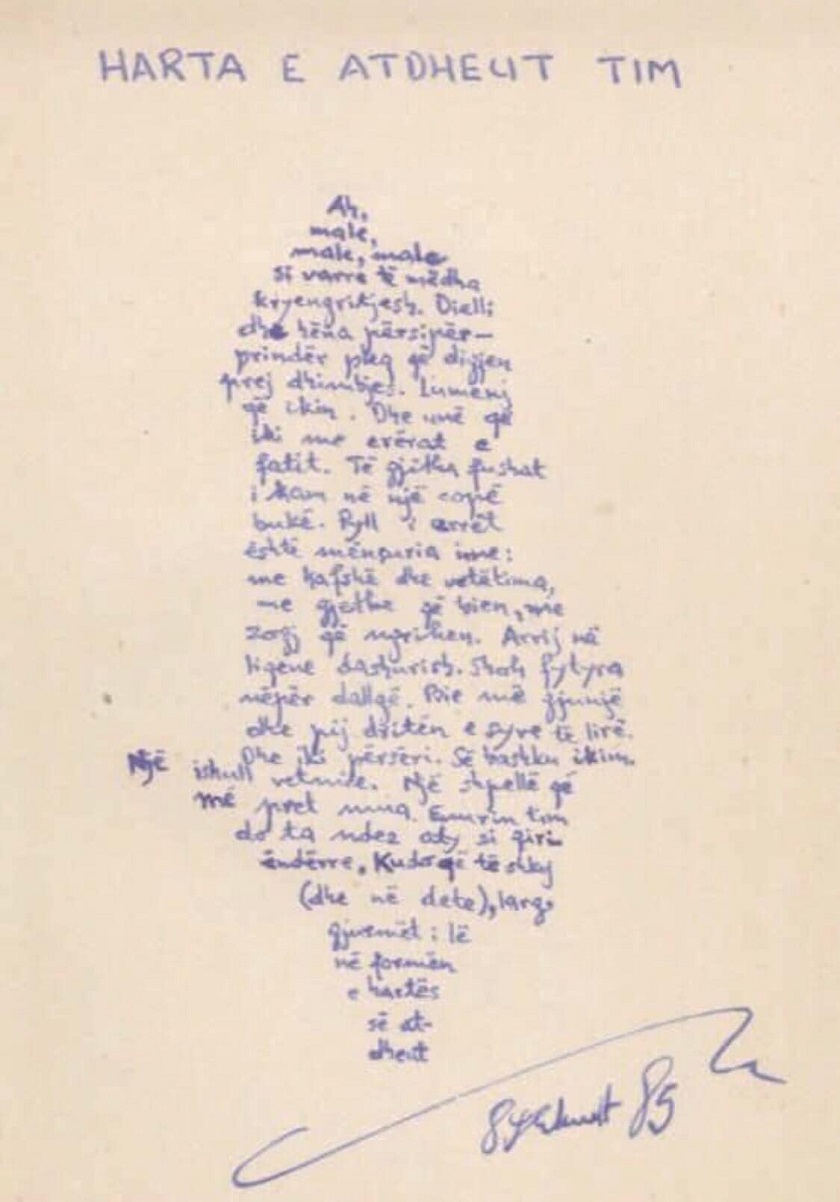 HARTA E ATDHEUT TIM
Ah,
male,
male, male
si varre të mëdha
kryengritjesh. Dielli
dhe hëna përsipër—
prindër pleq që digjen
prej dhimbjes. Lumenj
që ikin. Dhe unë që
iki me erërat e
fatit. Të gjitha fushat
i kam në një copë
bukë. Pyll i errët
është mënçuria ime:
me kafshë dhe vetëtima,
me gjethe që bien, me
zogj që ngrihen. Arrij në
liqene dashurish. Shoh fytyra
nëpër dallgë. Bie më gjunjë
dhe pij dritën e syve të lirë.
Dhe iki përsëri. Së bashku ikim.
Një ishull vetmie. Një shpellë që
më pret mua. Emrin tim
do ta ndez aty si qiri
ëndërre. Kudo që të shkoj
(dhe në dete), larg,
gjurmët i lë
në formën
e hartës
së at-
dheut
85